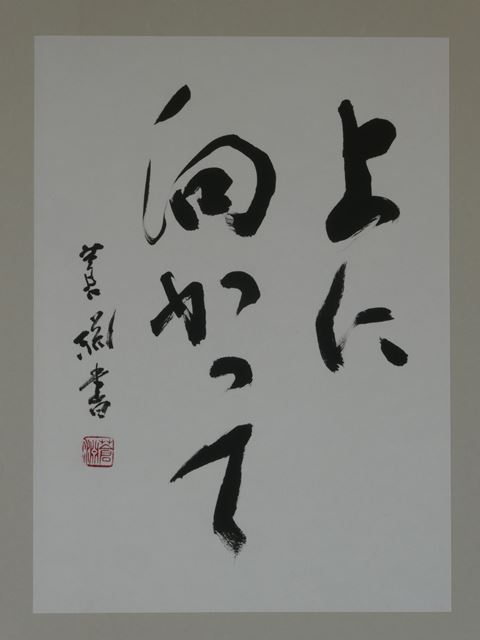 上に
向かって
書